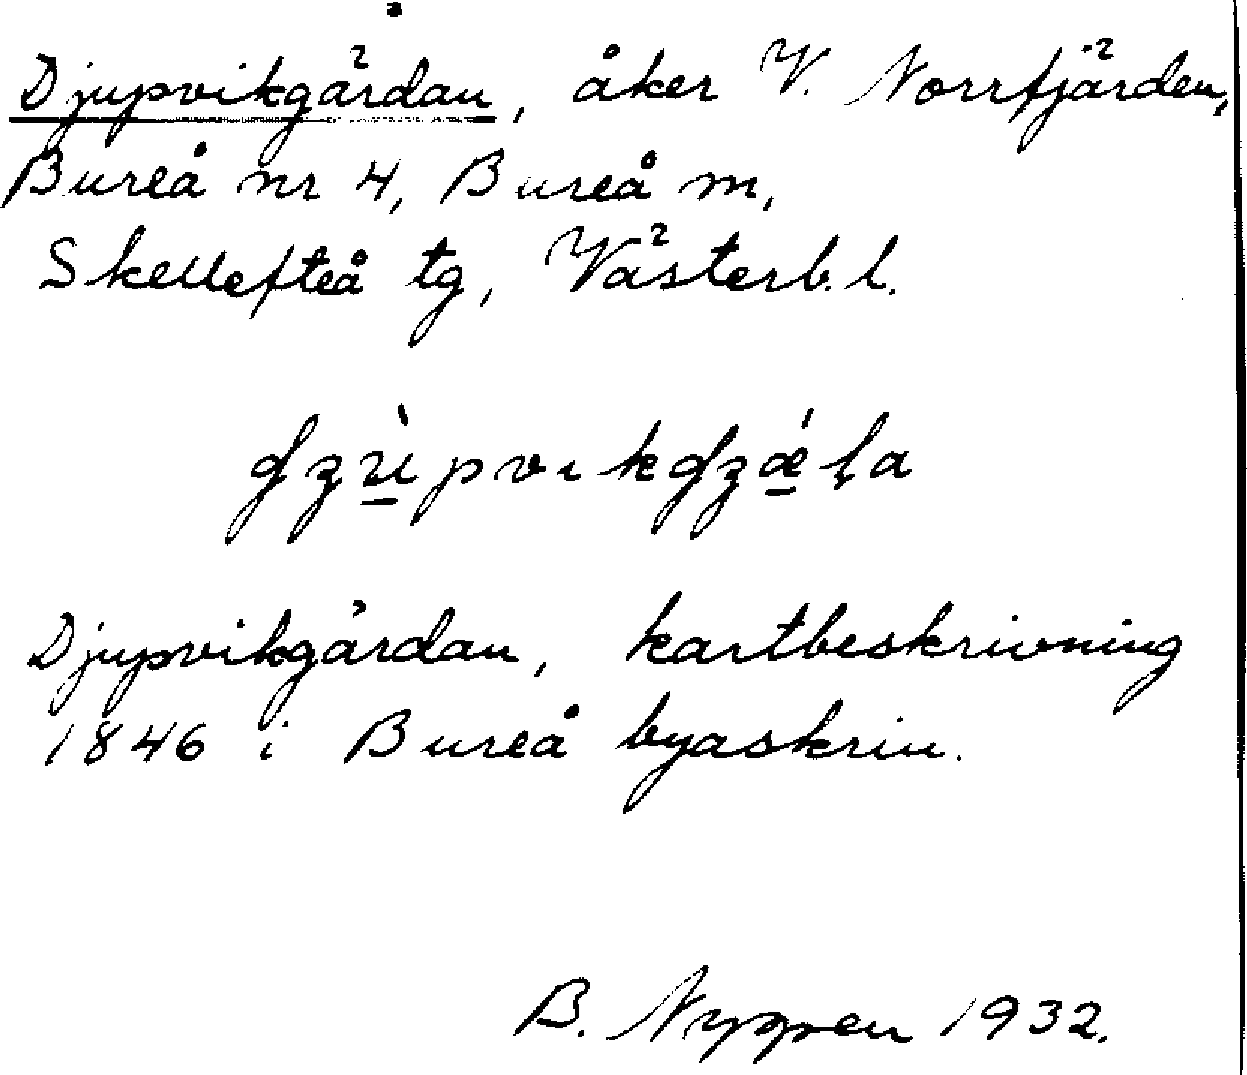 Djupvikgärdan, åker V. Norrfjärden,
Bureå nr 4, Bureå m,
Skellefteå tg, Västerb. l.
Djupvikgärdan, kartbeskrivning
1846 i Bureå byaskrin.
B. Nygren 1932.